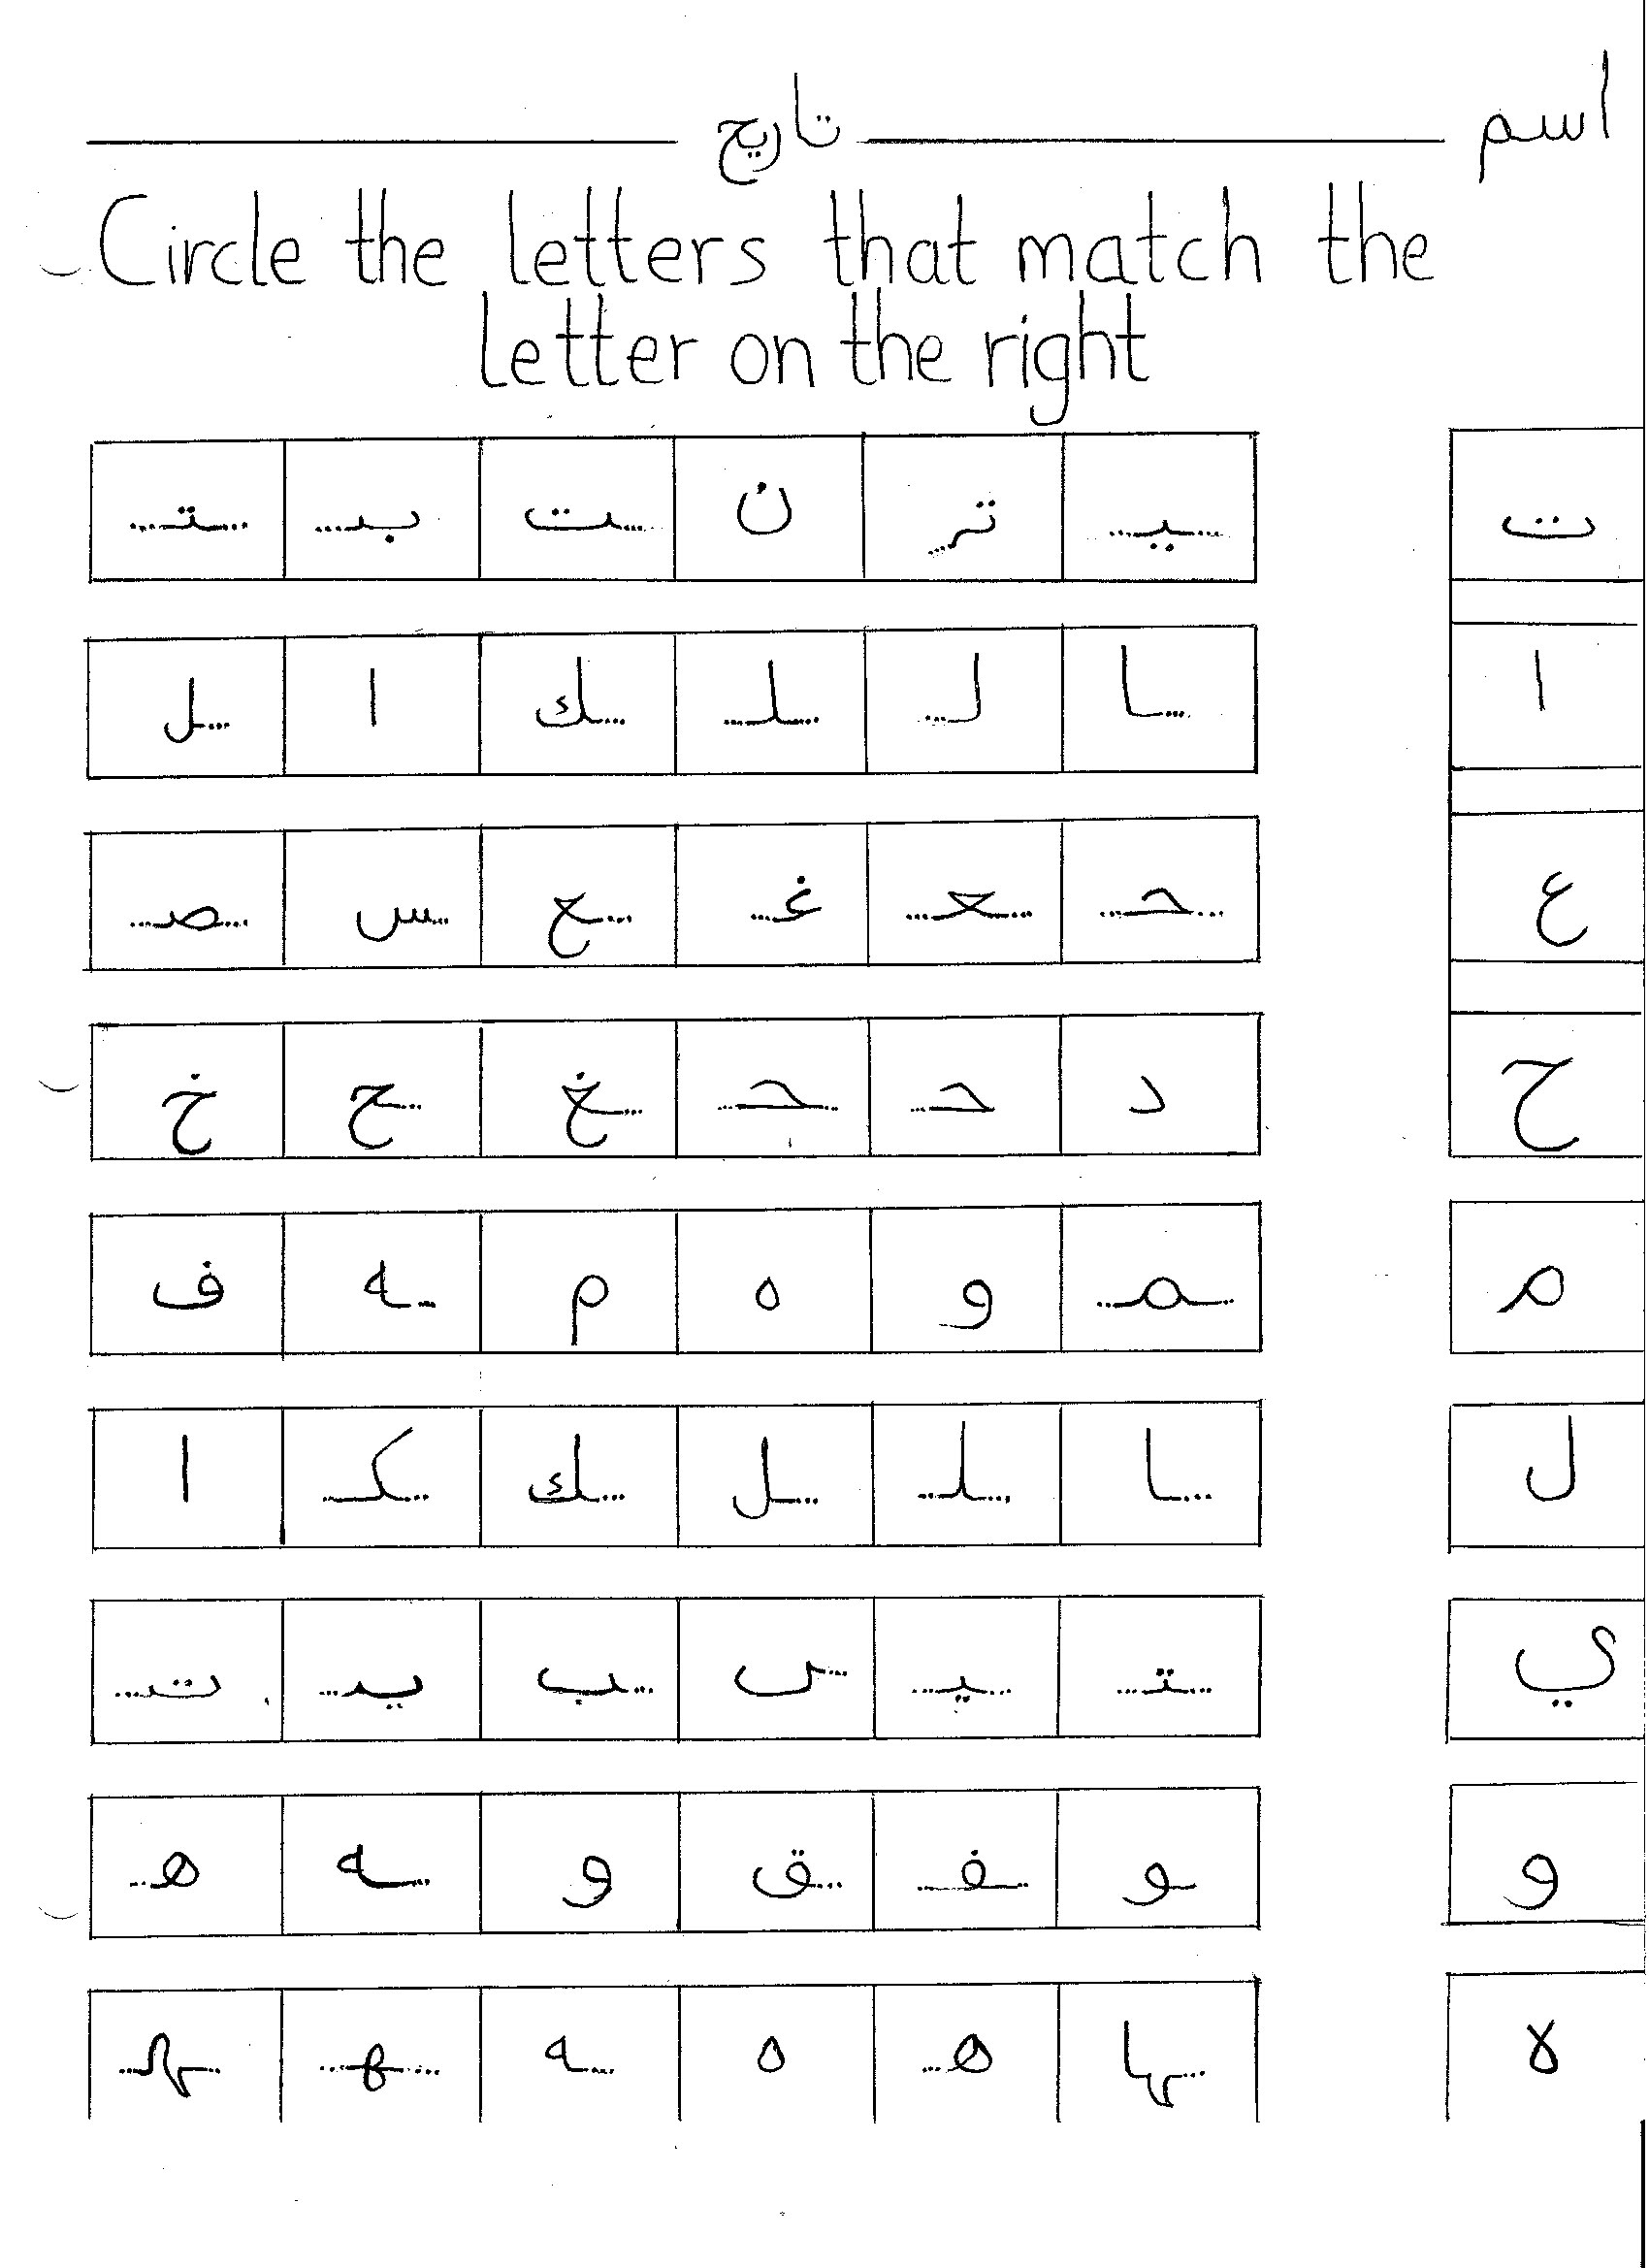 اسم ـــــــــ تاريح ـــــــــ
Circle the letters that match the
letter on the right
ت ـيـ تر ن ـت بـ ـتـ
ا ـا لـ ـلـ ـك ا ـل
ع ـحـ ـعـ غـ ـع س ـصـ
ح د حـ ـحـ ـغ ـح خ
م ـمـ و ه م ـه ف
ل ـا ـلـ ـل ـك ـكـ ا
ي ـتـ ـيـ ـى ـب يـ تـ
و ـو ـفـ ـق و ـه هـ
ه ـها هـ ه ـه ـهـ ـهـ